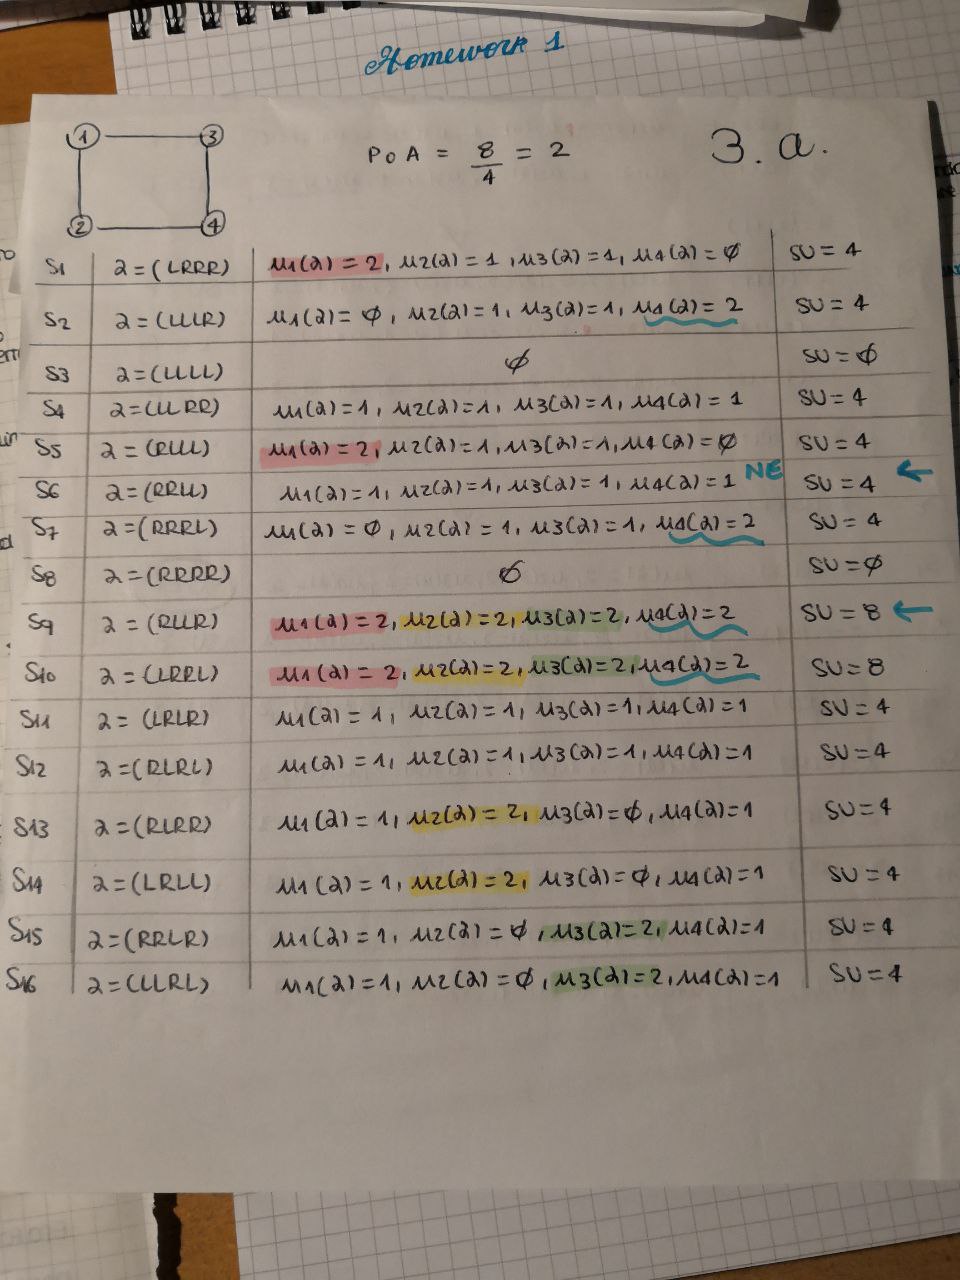 Homework 1
1 3
2 4
PoA = 8/4 = 2
3.a.
S1 a=(LRRR) u1(a)=2, u2(a)=1, u3(a)=1, u4(a)=∅ SU=4
S2 a=(LLLR) u1(a)=∅, u2(a)=1, u3(a)=1, u4(a)=2 SU=4
S3 a=(LLLL) ∅ SU=∅
S4 a=(LLRR) u1(a)=1, u2(a)=1, u3(a)=1, u4(a)=1 SU=4
S5 a=(RLLL) u1(a)=2, u2(a)=1, u3(a)=1, u4(a)=∅ SU=4
S6 a=(RRLL) u1(a)=1, u2(a)=1, u3(a)=1, u4(a)=1 NE SU=4 ←
S7 a=(RRRL) u1(a)=∅, u2(a)=1, u3(a)=1, u4(a)=2 SU=4
S8 a=(RRRR) ∅ SU=∅
S9 a=(RLLR) u1(a)=2, u2(a)=2, u3(a)=2, u4(a)=2 SU=8 ←
S10 a=(LRRL) u1(a)=2, u2(a)=2, u3(a)=2, u4(a)=2 SU=8
S11 a=(LRLR) u1(a)=1, u2(a)=1, u3(a)=1, u4(a)=1 SU=4
S12 a=(RLRL) u1(a)=1, u2(a)=1, u3(a)=1, u4(a)=1 SU=4
S13 a=(RLRR) u1(a)=1, u2(a)=2, u3(a)=∅, u4(a)=1 SU=4
S14 a=(LRLL) u1(a)=1, u2(a)=2, u3(a)=∅, u4(a)=1 SU=4
S15 a=(RRLR) u1(a)=1, u2(a)=∅, u3(a)=2, u4(a)=1 SU=4
S16 a=(LLRL) u1(a)=1, u2(a)=∅, u3(a)=2, u4(a)=1 SU=4